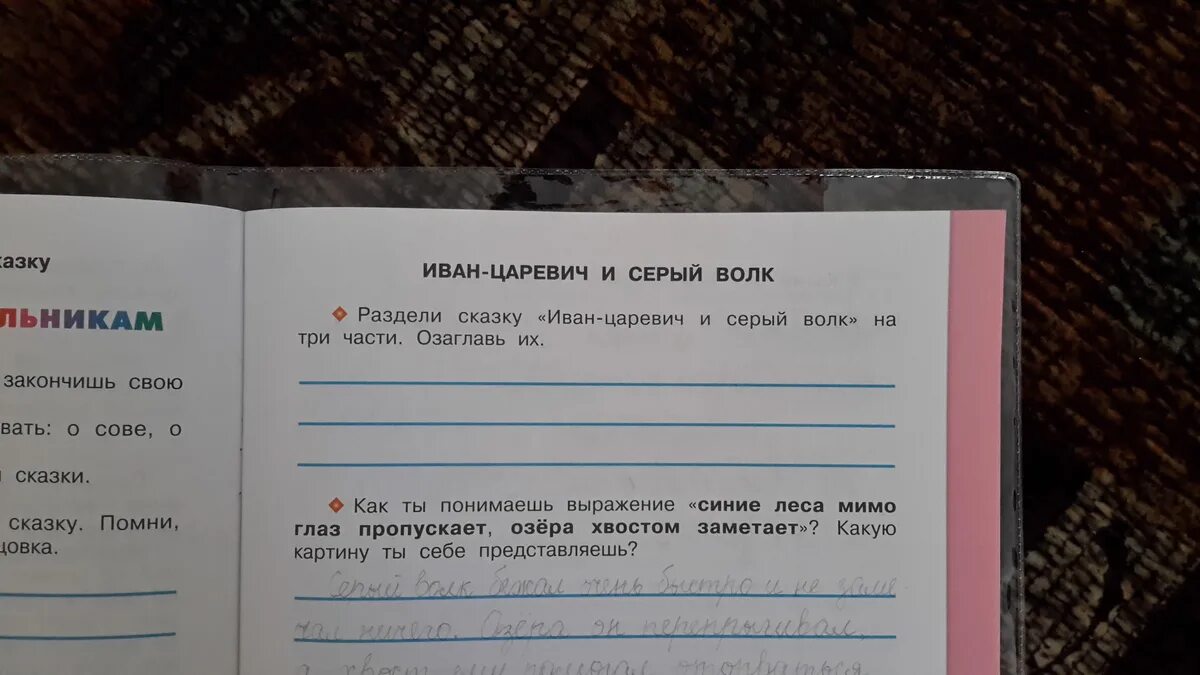 азку
ЛЬНИКАМ
закончишь свою
вать: о сове, о
сказки.
сказку. Помни,
цовка.
ИВАН-ЦАРЕВИЧ И СЕРЫЙ ВОЛК
Раздели сказку «Иван-царевич и серый волк» на
три части. Озаглавь их.
Как ты понимаешь выражение «синие леса мимо
глаз пропускает, озёра хвостом заметает»? Какую
картину ты себе представляешь?
Серый волк бежал очень быстро и не заме-
чал ничего. Озёра он перепрыгивал,
а хвост ему помогал оторваться